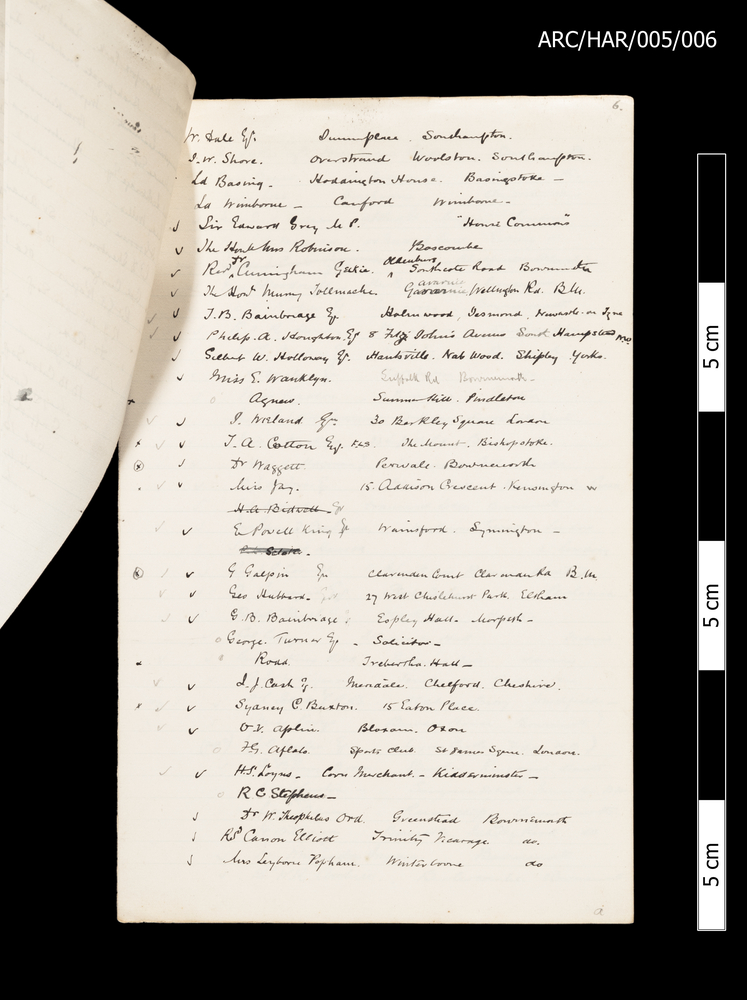 ARC/HAR/005/006
6.
W. Dale Esq. Southampton.
J. W. Shore. Overstrand Woolston. Southampton.
Ld Basing - Hoddington House. Basingstoke -
Ld Wimborne - Canford Wimborne -
Sir Edward Grey M.P. "House Commons"
The Honble Mrs Robinson. Boscombe
Revd Dr Cunningham Geikie. Oldenburg Southcote Road Bournemouth
The Honl Murray Tollemache. Wellington Rd. B.M.
T. B. Bainbridge Esq. Holmwood, Jesmond, Newcastle on Tyne
Philip. A. Houghton. Esq 8 Fitz Johns Avenue South Hampstead NW.
Gilbert W. Holloway Esq. Nab Wood. Shipley. Yorks.
Miss E. Wanklyn. Suffolk Rd Bournemouth -
Agnew. Summer Hill. Pendleton
J. Weiland Esq 30 Berkley Square London
T. A. Cotton Esq. F.Z.S. The Mount, Bishopstoke.
Dr Waggett. Bournemouth
Miss Jay. 15. Addison Crescent. Kensington w
H. A. Bidwell Esq
E. Powell King Esq Wainsford. Lymington -
G Galpin Esq Clarendon Court Clarendon Rd B.M.
Geo Hubbard. 27 West Chislehurst Park. Eltham
G. B. Bainbridge Espley Hall. Morpeth -
George. Turner Esq. - Solicitor -
Rodd. Trebartha. Hall -
J. J. Cash Esq. Chelford. Cheshire.
Sydney C. Buxton. 15 Eaton Place.
O. V. Aplin. Bloxam. Oxon
F. G. Aflalo. Sports Club. St James Square. London.
H. S. Loyns. - Corn Merchant. - Kidderminster -
R C Stephens -
Dr. W. Theophilus Ord. Greenstead Bournemouth
Rd Canon Elliott Trinity Vicarage do.
Mrs Leyborne Popham. Winterbourne do
5 cm
5 cm
5 cm